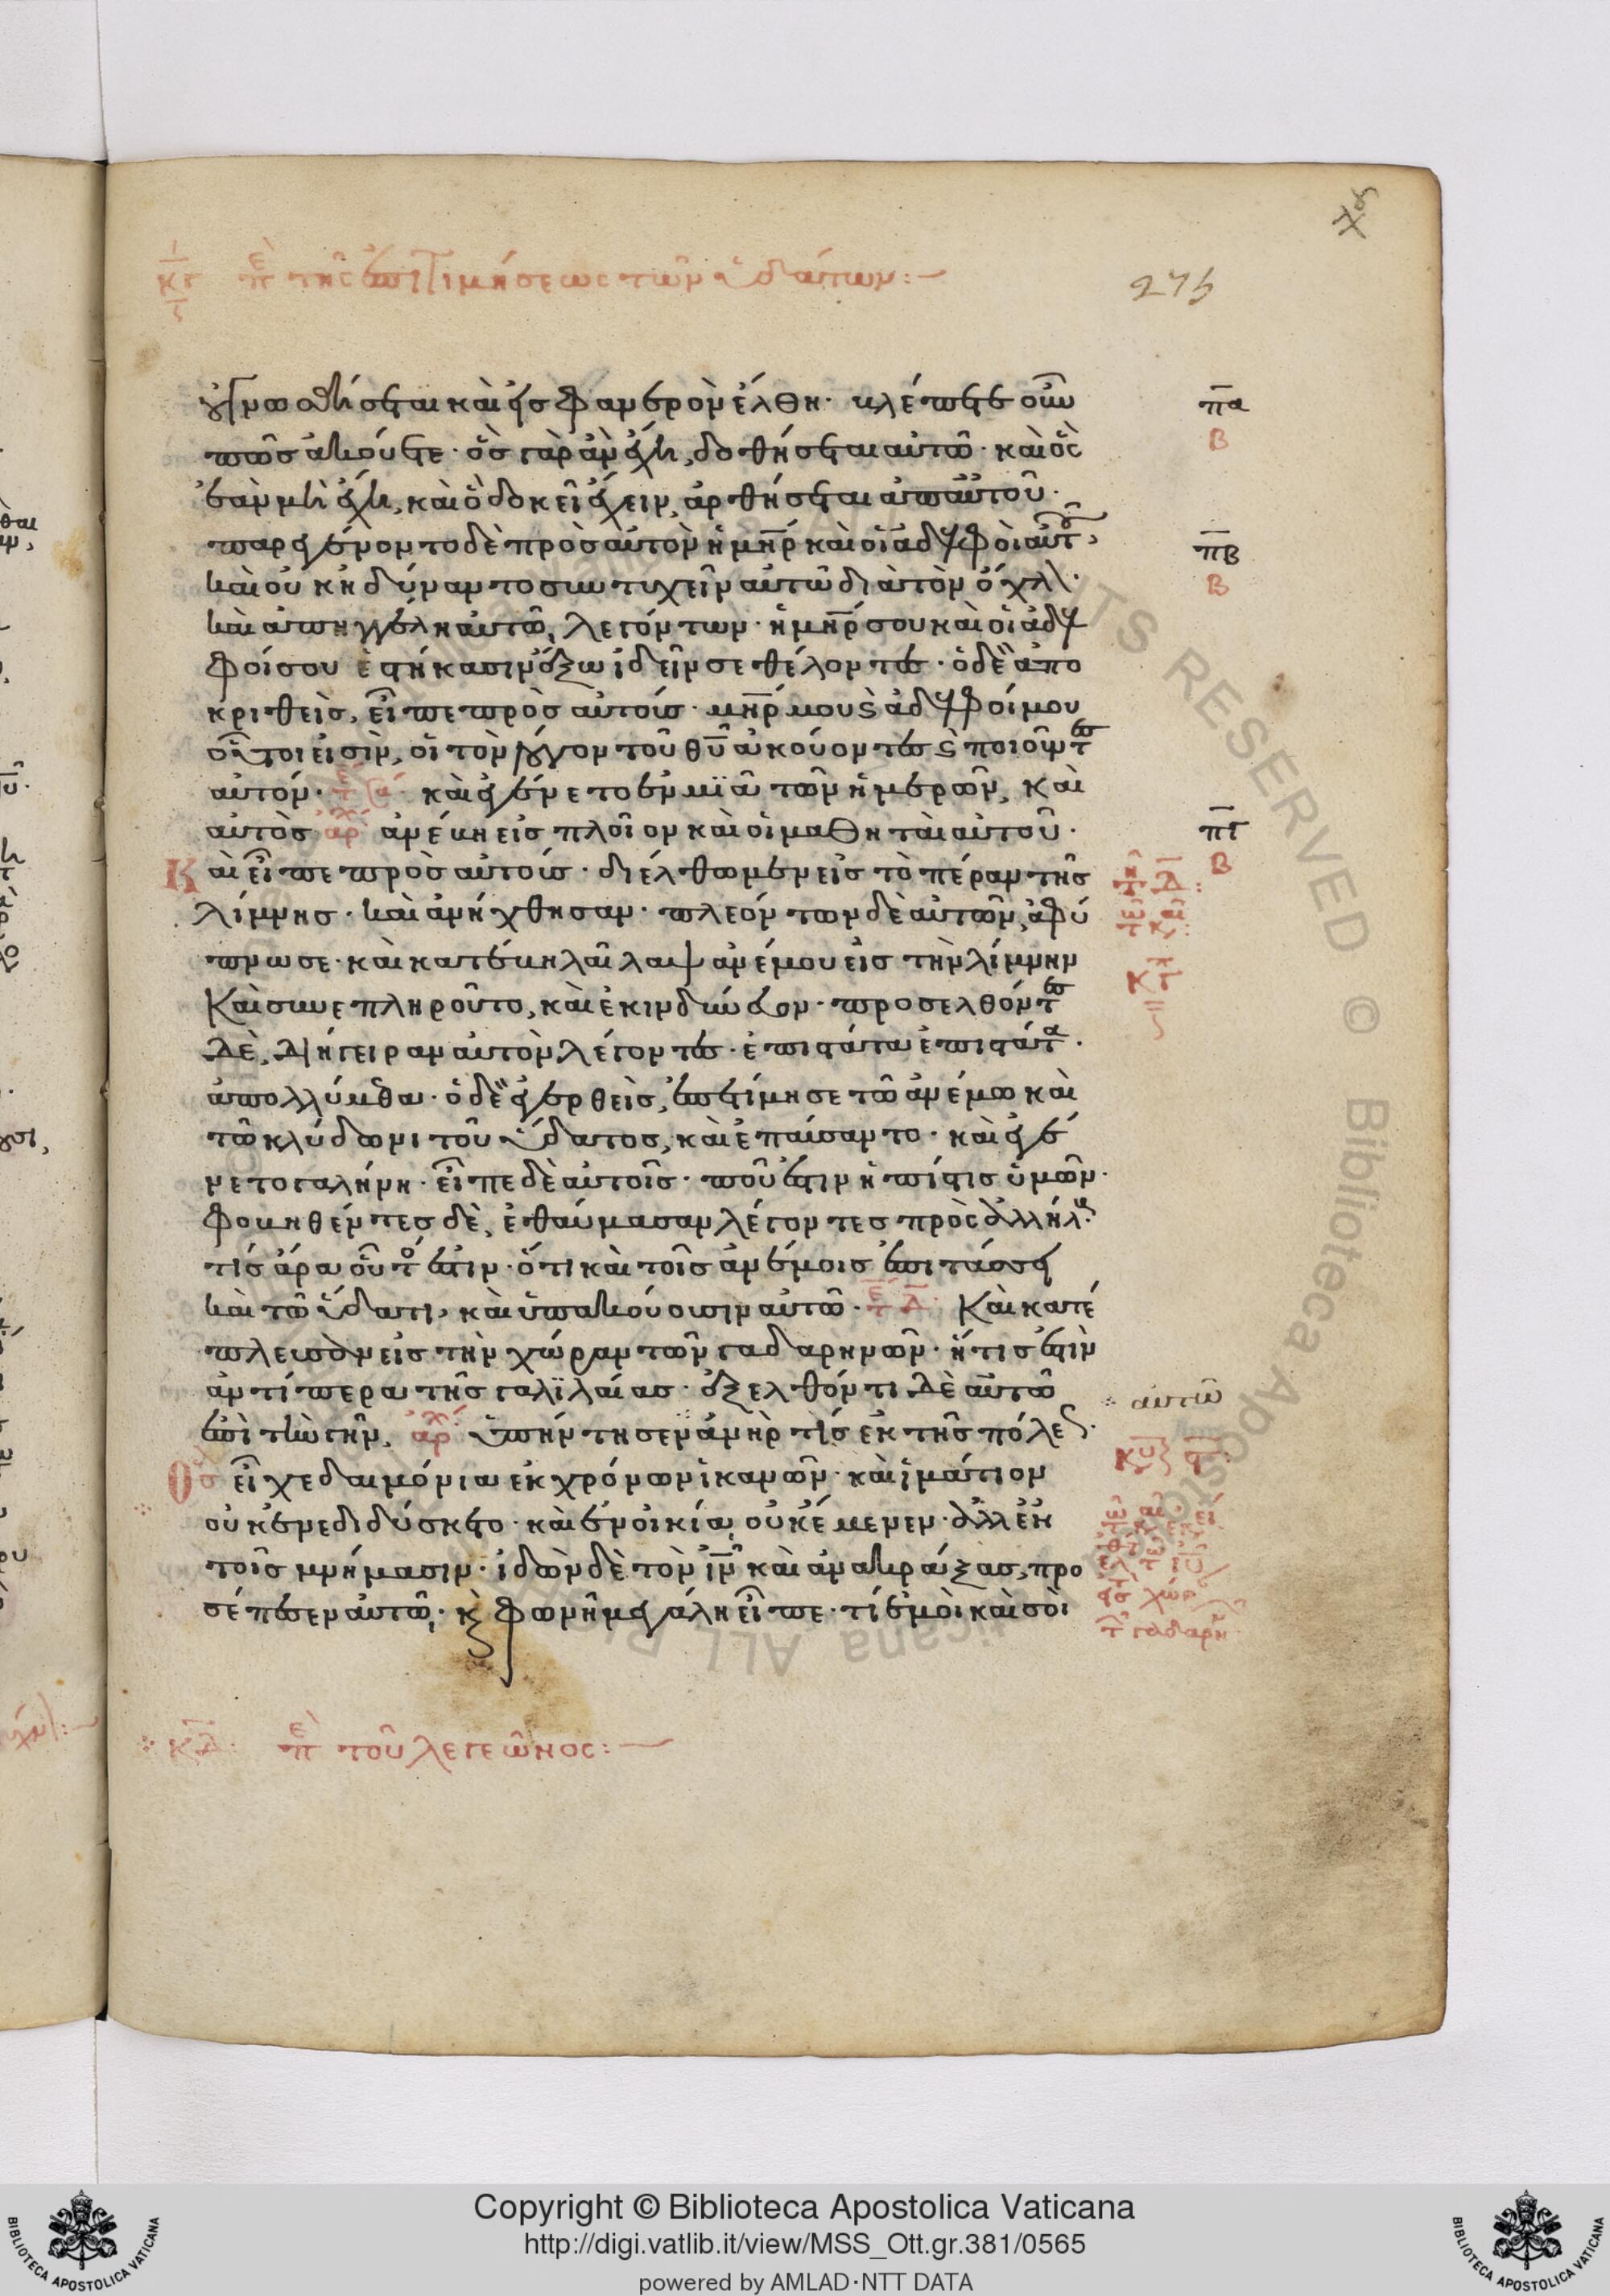 κγ ἐπὶ τῆς ἐπιτιμήσεως τῶν ὑδάτων:—
275
γνωσθήσεται καὶ εἰς φανερὸν ἔλθη· βλέπετε οὖν
πῶς ἀκούετε· ὃς γὰρ ἂν ἔχη, δοθήσεται αὐτῶ· καὶ ὃς
ἐὰν μὴ ἔχη, καὶ ὃ δοκεῖ ἔχειν, ἀρθήσεται ἀπ' αὐτοῦ·
παρεγένοντο δὲ πρὸς αὐτὸν ἡ μη̅ρ καὶ οἱ ἀδελφοὶ αὐτοῦ,
καὶ οὐκ ἠδύναντο συντυχεῖν αὐτῶ διὰ τὸν ὄχλ
καὶ ἀπηγγέλη αὐτῶ, λεγόντων· ἡ μη̅ρ σου καὶ οἱ ἀδελ
φοί σου ἑστήκασιν ἔξω ἰδεῖν σε θέλοντες· ὁ δὲ ἀπο
κριθεὶς, εἶπε πρὸς αὐτούς· μη̅ρ μου ϛ ἀδελφοί μου
οὗτοι εἰσὶν, οἱ τὸν λόγον τοῦ θ̅υ ἀκούοντες ϛ ποιοῦντες
αὐτόν· καὶ ἐγένετο ἐν μιᾶ τῶν ἡμερῶν, καὶ
αὐτὸς ἀρχ ἀνέβη εἰς πλοῖον καὶ οἱ μαθηταὶ αὐτοῦ·
Καὶ εἶπε πρὸς αὐτούς· διέλθωμεν εἰς τὸ πέραν τῆς
λίμνης· καὶ ἀνήχθησαν· πλεόντων δὲ αὐτῶν, ἀφύ
πνωσε· καὶ κατέβη λαῖλαψ ἀνέμου εἰς τὴν λίμνην
καὶ συνεπληροῦντο, καὶ ἐκινδύνευον· προσελθόντες
δὲ, διήγειραν αὐτὸν, λέγοντες· ἐπιστάτα ἐπιστάτα·
ἀπολλύμεθα· ὁ δὲ ἐγερθεὶς, ἐπετίμησε τῶ ἀνέμω καὶ
τῶ κλύδωνι τοῦ ὕδατος, καὶ ἐπαύσαντο· καὶ ἐγέ
νετο γαλήνη· εἶπε δὲ αὐτοῖς· ποῦ ἐστιν ἡ πίστις ὑμῶν·
φοβηθέντες δὲ, ἐθαύμασαν λέγοντες πρὸς ἀλλήλους·
τίς ἄρα οὗτός ἐστιν· ὅτι καὶ τοῖς ἀνέμοις ἐπιτάσσει
καὶ τῶ ὕδατι, καὶ ὑπακούουσιν αὐτῶ· Καὶ κατέ
πλευσεν εἰς τὴν χώραν τῶν γαδαρηνῶν· ἥτις ἐστὶν
ἀντίπερα τῆς γαλιλαίας· ἐξελθόντι δὲ αὐτῶ
ἐπὶ τὴν γῆν, ἀρχ ὑπήντησεν ἀνὴρ τίς ἐκ τῆς πόλεως·
Ὃς εἶχε δαιμόνια ἐκ χρόνων ἱκανῶν· καὶ ἱμάτιον
οὐκ ἐνεδιδύσκετο· καὶ ἐν οἰκία οὐκ ἔμενεν· ἀλλ' ἐκ
τοῖς μνήμασιν· ἰδὼν δὲ τὸν ι̅ν καὶ ἀνακράξας, προ
σέπεσεν αὐτῶ, κ φωνῆ μεγάλη εἶπε· τί ἐμοὶ καὶ σοὶ
κδ ἐπὶ τοῦ λεγεῶνος:—
πα
β
πβ
β
πγ
β
αὐτῶ
Copyright © Biblioteca Apostolica Vaticana
http://digi.vatlib.it/view/MSS_Ott.gr.381/0565
powered by AMLAD·NTT DATA